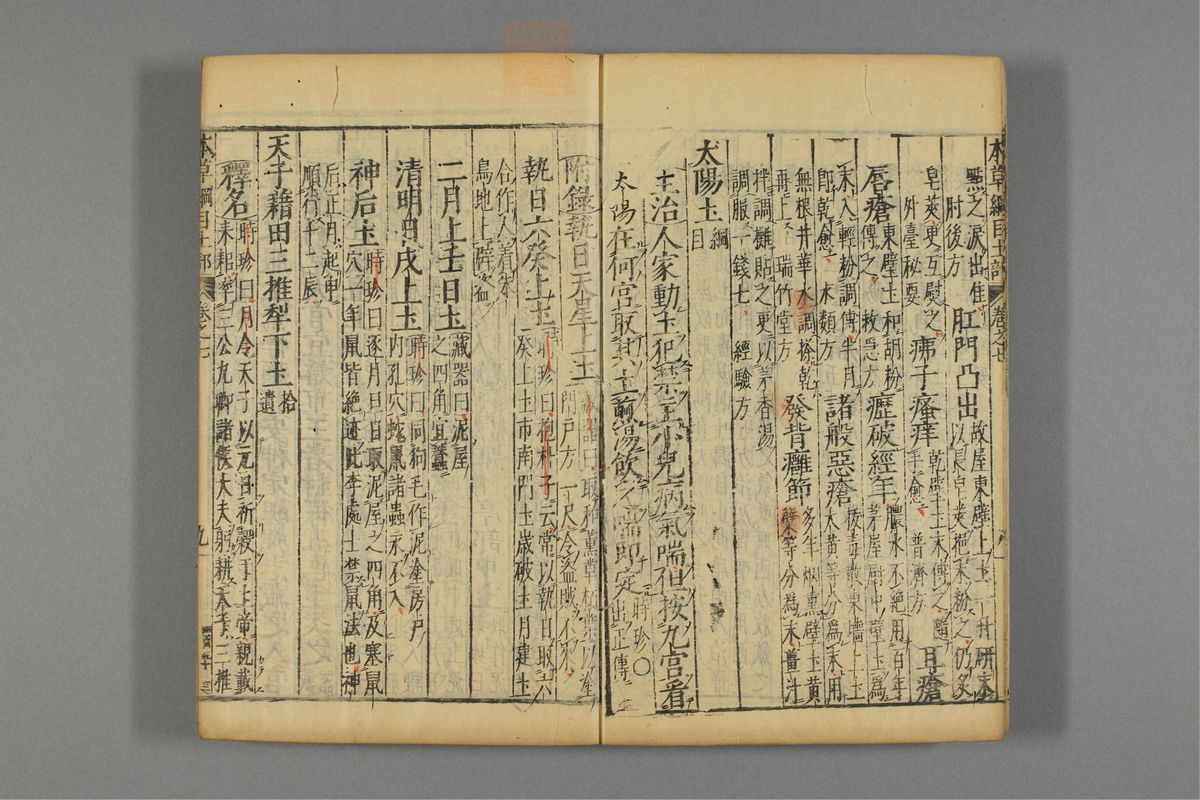 本草綱目土部 卷之七
點之淚出佳肘後方 肛門凸出 故屋東壁上土一升研末以長皂莢挹末粉之仍炙
皂莢更互熨之外臺秘要 痱子瘙痒 乾壁土末傅之隨手愈普濟方 耳瘡
唇瘡 東壁土和胡粉傅之救急方 瀝破經年 膿水不絶用百年茅屋厨中壁土爲
末入輕粉調傅半月即乾愈永類方 諸般惡瘡 拔毒散東墻上土大黃等分爲末用
無根井華水調搽乾再上瑞竹堂方 發背癰節 多年烟熏壁土黃蘗等分為末薑汁
拌調攤貼之更以茅香湯調服一錢七經驗方
太陽土綱目
主治人家動土犯禁主小兒病氣喘但按九宮看
太陽在何宮取其土煎湯飲之喘即定時珍○出正傳
附錄執日天星上土藏器曰取和薰草栢葉以塗門戶方一尺令盜賊不來
執日六癸上土時珍曰抱朴子云常以執日取六癸上土市南門土歲破土月建土
合作人着朱鳥地上辟盜
二月上壬日土藏器曰泥屋之四角宜蠶
清明日戌上土時珍曰同狗毛作泥塗房戶內孔穴蛇鼠諸蟲永不入
神后土時珍曰逐月旦日取泥屋之四角及塞鼠穴一年鼠皆絕迹此李處士禁鼠法也神
后正月起申順行十二辰
天子藉田三推犁下土拾遺
釋名時珍曰月令天子以元日祈穀于上帝親載耒耜率三公九卿諸侯大夫躬耕天子三推
本草綱目土部 卷之七 九